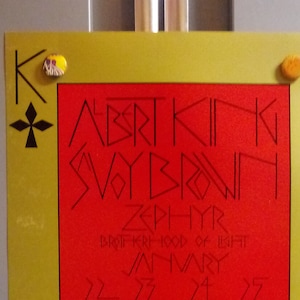 K
ALBERT KING
SAVOY BROWN
ZEPHYR
BROTHERHOOD OF LIGHT
JANUARY
22 23 24 25